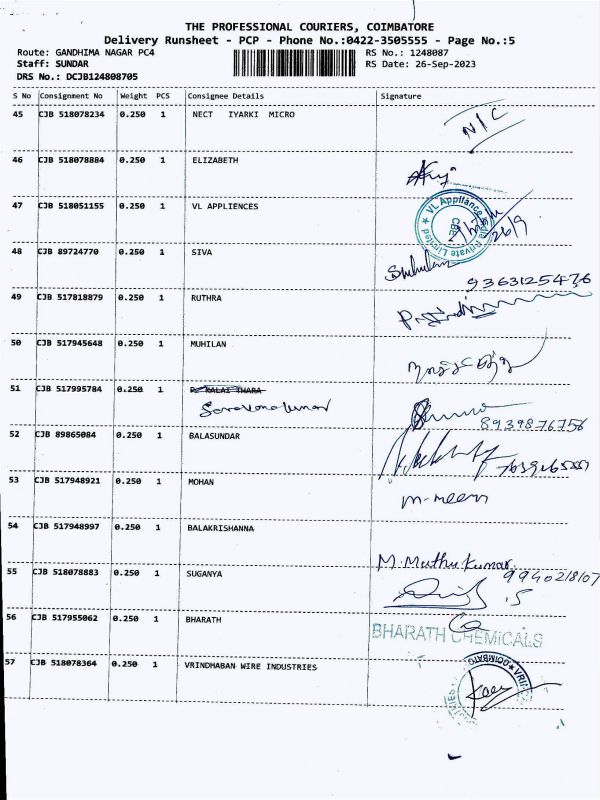 THE PROFESSIONAL COURIERS, COIMBATORE
Delivery Runsheet - PCP - Phone No.:0422-3505555 - Page No.:5
Route: GANDHIMA NAGAR PC4 RS No.: 1248087
Staff: SUNDAR RS Date: 26-Sep-2023
DRS No.: DCJB124808705
S No Consignment No Weight PCS Consignee Details Signature
45 CJB 518078234 0.250 1 NECT IYARKI MICRO N/C
46 CJB 518078884 0.250 1 ELIZABETH
47 CJB 518051155 0.250 1 VL APPLIENCES VL Appliance Private Limited CBE 26/9
48 CJB 89724770 0.250 1 SIVA
9363125476
49 CJB 517818879 0.250 1 RUTHRA
50 CJB 517945648 0.250 1 MUHILAN
51 CJB 517995784 0.250 1 KALAI THARA
Saravanakumar 8939876756
52 CJB 89865084 0.250 1 BALASUNDAR
53 CJB 517948921 0.250 1 MOHAN
54 CJB 517948997 0.250 1 BALAKRISHANNA
M. Muthu Kumar
55 CJB 518078883 0.250 1 SUGANYA
56 CJB 517955062 0.250 1 BHARATH
BHARATH CHEMICALS
57 CJB 518078364 0.250 1 VRINDHABAN WIRE INDUSTRIES